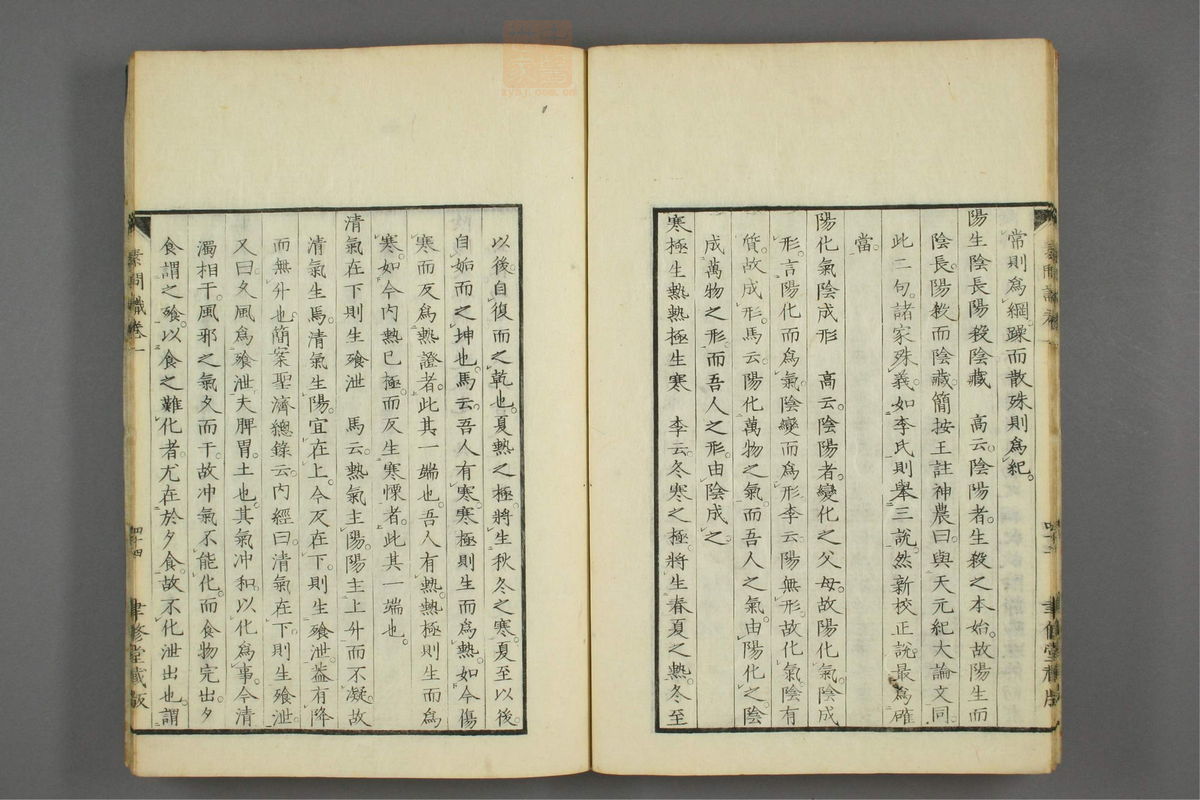 常則爲綱躁而散殊則爲紀
陽生陰長陽殺陰藏　高云陰陽者生殺之本始故陽生而
陰長陽殺而陰藏簡按王註神農曰與天元紀大論文同
此二句諸家殊義如李氏則舉三說然新校正說最爲確
當
陽化氣陰成形　高云陰陽者變化之父母故陽化氣陰成
形言陽化而爲氣陰變而爲形李云陽無形故化氣陰有
質故成形馬云陽化萬物之氣而吾人之氣由陽化之陰
成萬物之形而吾人之形由陰成之
寒極生熱熱極生寒　李云冬寒之極將生春夏之熱冬至
以後自復而之乾也夏熱之極將生秋冬之寒夏至以後
自姤而之坤也馬云吾人有寒寒極則生而爲熱如今傷
寒而反爲熱證者此其一端也吾人有熱熱極則生而爲
寒如今內熱已極而反生寒慄者此其一端也
清氣在下則生飱泄　馬云熱氣主陽陽主上升而不凝故
清氣生焉清氣生陽宜在上今反在下則生飱泄蓋有降
而無升也簡案聖濟總錄云內經曰清氣在下則生飱泄
又曰久風爲飱泄夫脾胃土也其氣冲和以化爲事今清
濁相干風邪之氣久而干故冲氣不能化而食物完出夕
食謂之飱以食之難化者尤在於夕食故不化泄出也謂
素問識卷一
四十四
聿修堂藏版